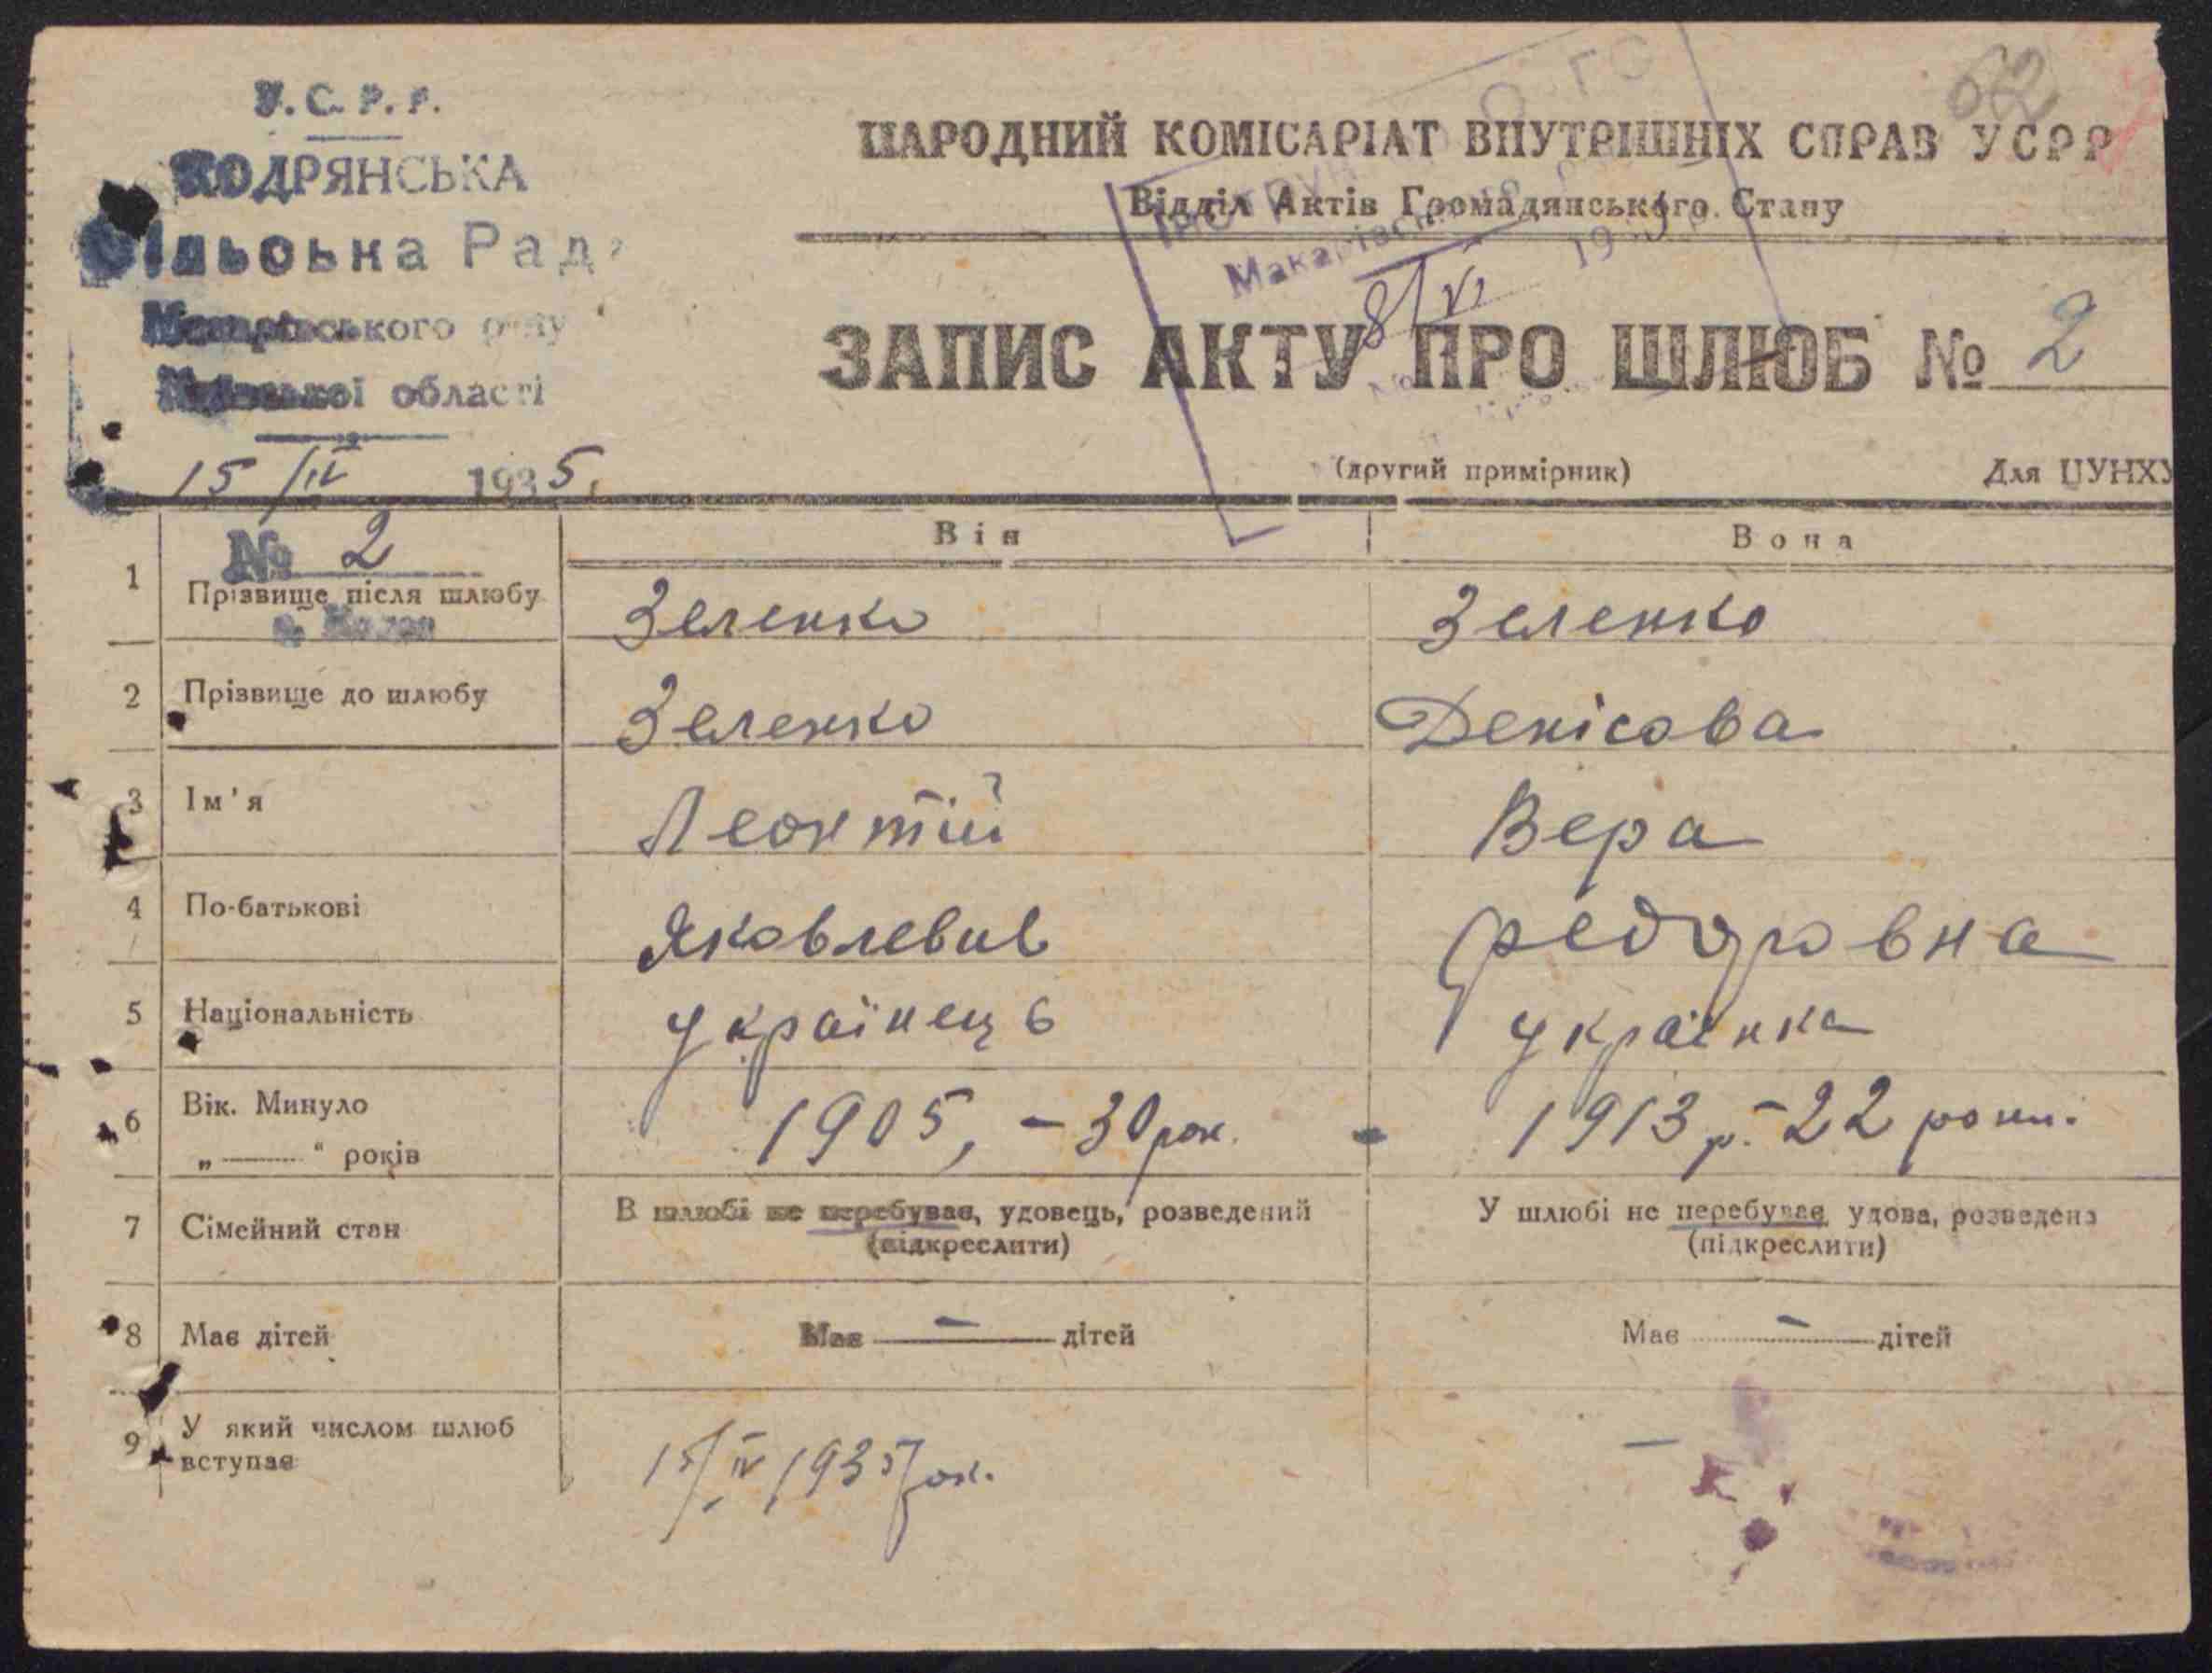 62
У.С.Р.Р.
КОДРЯНСЬКА
Сільська Рада
Макарівського р-ну
Київської області
15/IV 1935.
№ 2
с. Кодра
НАРОДНИЙ КОМІСАРІАТ ВНУТРІШНІХ СПРАВ УСРР
Відділ Актів Громадянського Стану
Макарівського
8/VI 193
ЗАПИС АКТУ ПРО ШЛЮБ № 2
(другий примірник) Для ЦУНХУ
Він Вона
1 Прізвище після шлюбу Зеленко Зеленко
2 Прізвище до шлюбу Зеленко Денісова
3 Ім'я Леонтій Вера
4 По-батькові Яковлевич Федоровна
5 Національність Українець Українка
6 Вік. Минуло 1905, – 30 рок. 1913 р. – 22 роки.
„ — “ років
7 Сімейний стан В шлюбі не перебуває, удовець, розведений У шлюбі не перебуває, удова, розведена
(підкреслити) (підкреслити)
8 Має дітей Має — дітей Має — дітей
9 У який числом шлюб 15/IV 1935 рок. –
вступає